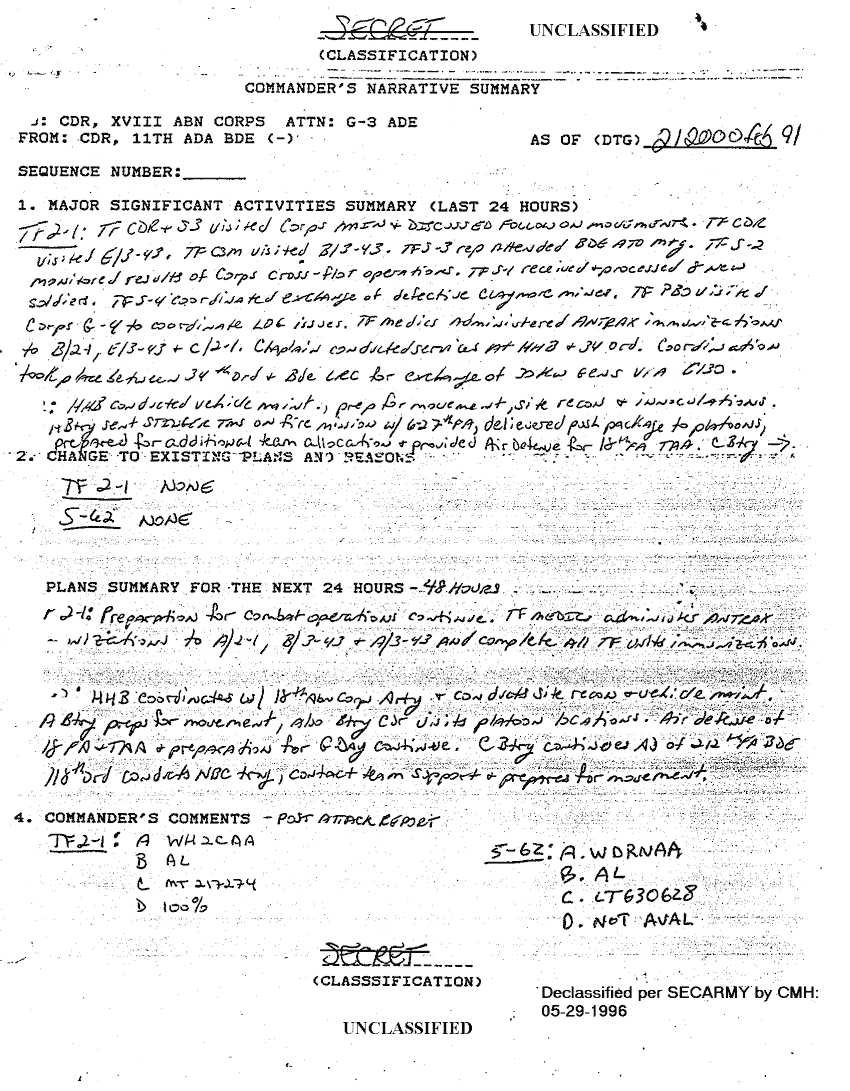 SECRET UNCLASSIFIED
(CLASSIFICATION)
COMMANDER'S NARRATIVE SUMMARY
: CDR, XVIII ABN CORPS ATTN: G-3 ADE
FROM: CDR, 11TH ADA BDE (-) AS OF (DTG) 212000 feb 91
SEQUENCE NUMBER:______
1. MAJOR SIGNIFICANT ACTIVITIES SUMMARY (LAST 24 HOURS)
TF 2-1: TF CDR + S3 visited Corps MAIN + DISCUSSED FOLLOW ON movements. TF CDR
visited E/3-43. TF CSM visited B/3-43. TF S-3 rep Attended BDE ATO mtg. TF S-2
monitored results of Corps Cross-flot operations. TF S-1 received + processed 8 new
soldiers. TF S-4 Coordinated exchange of defective Claymore mines. TF PBO visited
Corps G-4 to coordinate LOG issues. TF medics Administered ANTRAX immunizations
to B/2-1, E/3-43 + C/2-1. Chaplain conducted services At HHB + 34 Ord. Coordination
took place between 34th Ord + Bde LRC for exchange of 30KW Gens VIA C130.
: HHB conducted vehicle maint., prep for movement, site recon + innoculations.
A Btry sent STINGER TMS on fire mission w/ 627th FA, delievered push package to platoons,
prepared for additional team allocation + provided Air Defense for 18th FA TAA. C Btry →.
2. CHANGE TO EXISTING PLANS AND REASONS
TF 2-1 NONE
5-62 NONE
PLANS SUMMARY FOR THE NEXT 24 HOURS - 48 HOURS
F 2-1: Preparation for combat operations continue. TF MEDICS administers ANTRAX
- nizations to A/2-1, B/3-43 + A/3-43 AND complete All TF units immunizations.
: HHB coordinates w/ 18th Abn Corps Arty + conducts site recon + vehicle maint.
A Btry preps for movement, also Btry Cdr visits platoon locations. Air defense of
18 FA TAA + preparation for G-Day continue. C Btry continues AD of 212th FA BDE
118th ord conducts NBC trng, contact team support + prepares for movement.
4. COMMANDER'S COMMENTS - POST ATTACK REPORT
TF 2-1: A WH2CAA
B AL
C MT 217274
D 100%
5-62: A. WDRNAA
B. AL
C. LT630628
D. NOT AVAL
SECRET
(CLASSSIFICATION)
Declassified per SECARMY by CMH:
05-29-1996
UNCLASSIFIED